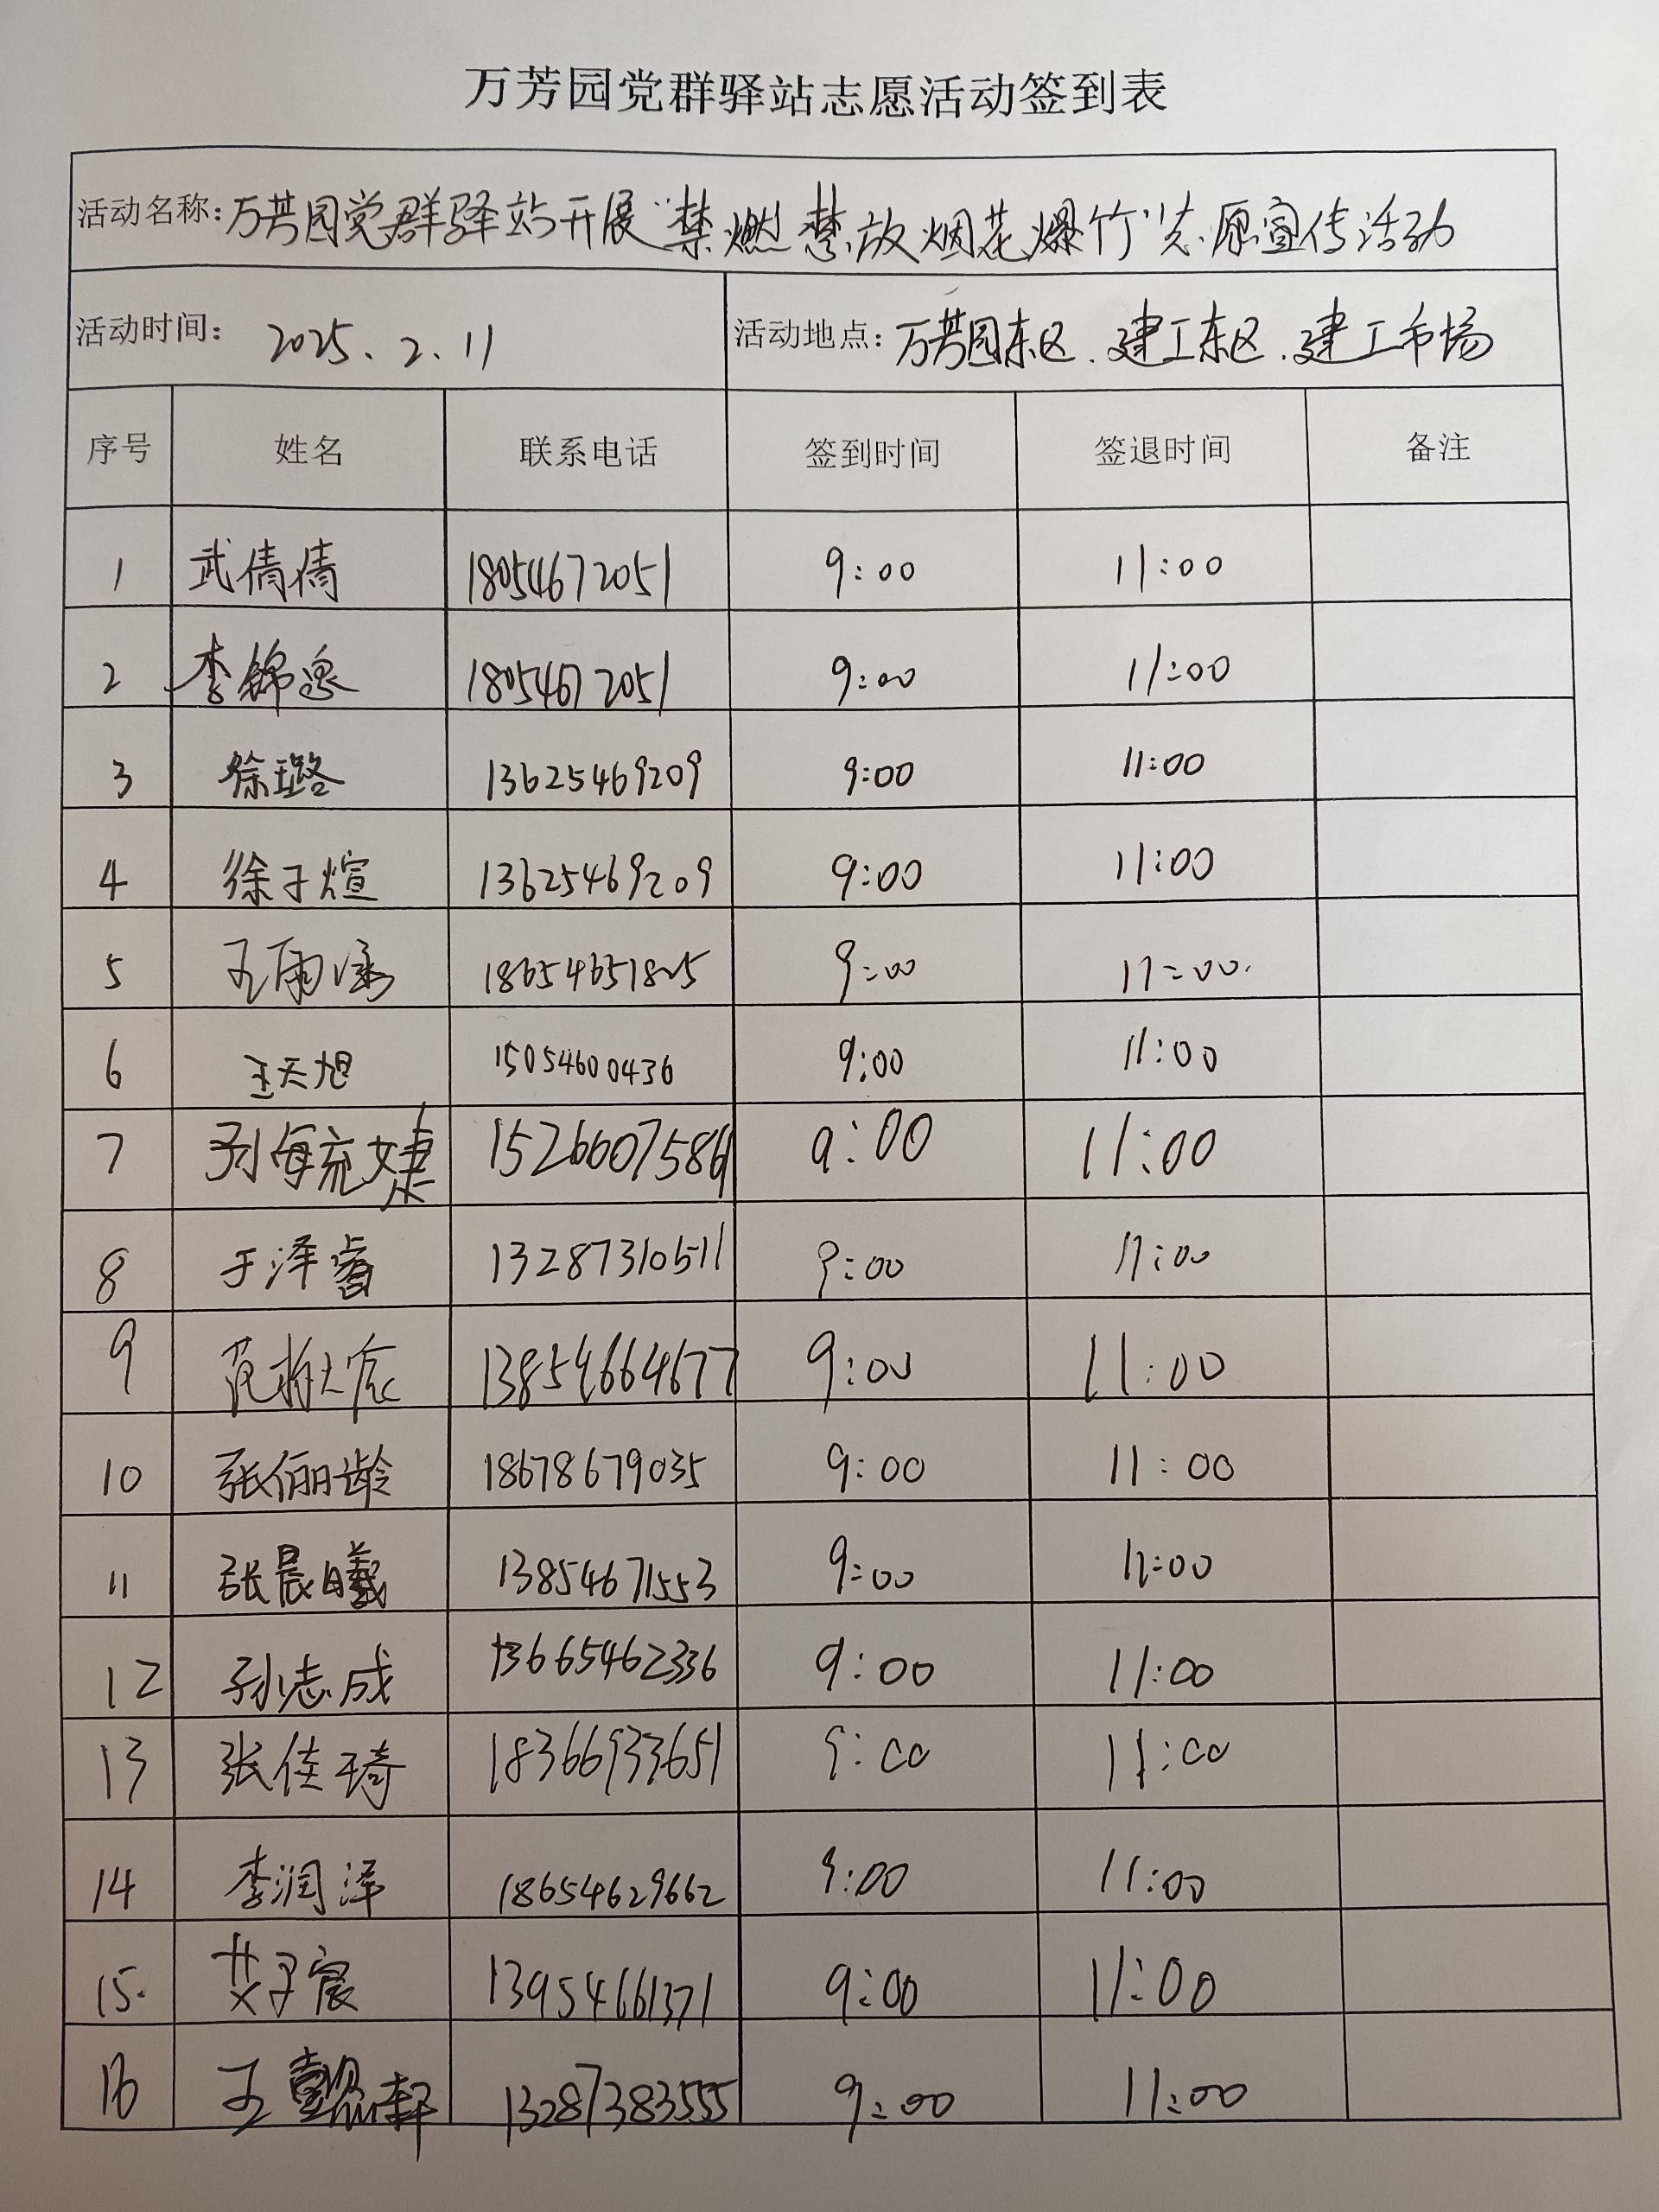 万芳园党群驿站志愿活动签到表
活动名称: 万芳园党群驿站开展“禁燃禁放烟花爆竹”志愿宣传活动
活动时间: 2025.2.11 活动地点: 万芳园东区、建工东区、建工市场
序号 姓名 联系电话 签到时间 签退时间 备注
1 武倩倩 18054672051 9:00 11:00
2 李锦逸 18054672051 9:00 11:00
3 徐璐 13625469209 9:00 11:00
4 徐子煊 13625469209 9:00 11:00
5 王雨涵 18654651825 9:00 11:00
6 王天旭 15054600436 9:00 11:00
7 孙海充婕 9:00 11:00
8 于泽睿 13287310511 9:00 11:00
9 范 13854664677 9:00 11:00
10 张俪龄 18678679035 9:00 11:00
11 张晨曦 13854671553 9:00 11:00
12 孙志成 13665462336 9:00 11:00
13 张佳琦 18366933651 9:00 11:00
14 李润泽 18654629662 9:00 11:00
15. 艾子宸 13954661371 9:00 11:00
16 王懿轩 13287383555 9:00 11:00